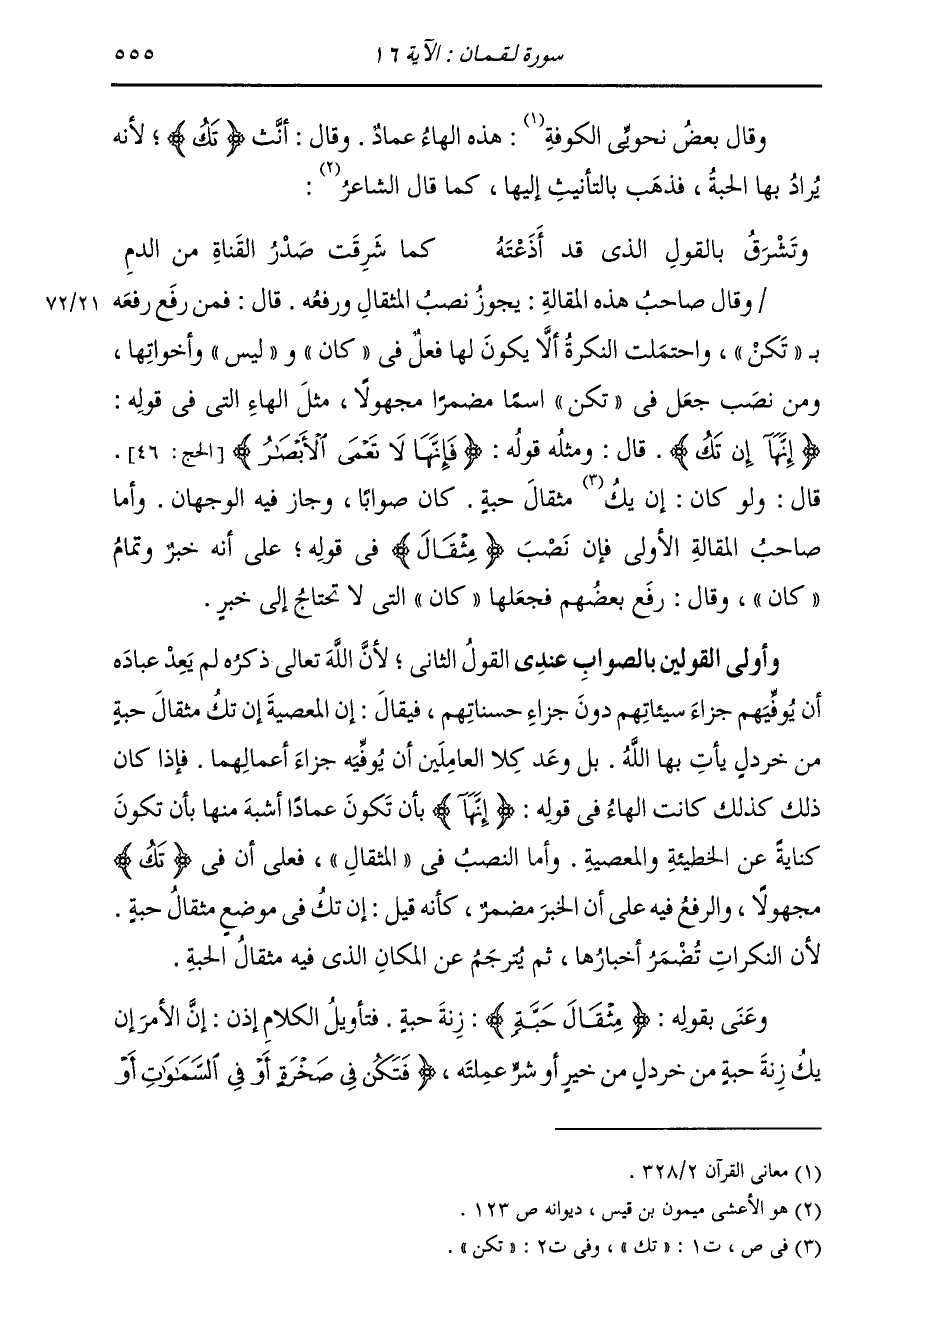 سورة لقمان : الآية ١٦ ٥٥٥
وقال بعضُ نحويِّى الكوفةِ(١) : هذه الهاءُ عمادٌ . وقال : أنَّث ﴿ تَكُ ﴾ ؛ لأنه
يُرادُ بها الحبةُ ، فذهَب بالتأنيثِ إليها ، كما قال الشاعرُ(٢) :
وتَشْرَقُ بالقولِ الذى قد أَذَعْتَهُ كما شَرِقَت صَدْرُ القَناةِ من الدمِ
/ وقال صاحبُ هذه المقالةِ : يجوزُ نصبُ المثقالِ ورفعُه . قال : فمن رفَع رفعَه ٧٢/٢١
بـ « تَكنْ » ، واحتمَلت النكرةُ ألَّا يكونَ لها فعلٌ فى « كان » و « ليس » وأخواتِها ،
ومن نصَب جعَل فى « تكن » اسمًا مضمرًا مجهولًا ، مثلَ الهاءِ التى فى قولِه :
﴿ إِنَّهَآ إِن تَكُ ﴾ . قال : ومثلُه قولُه : ﴿ فَإِنَّهَا لَا تَعْمَى ٱلْأَبْصَٰرُ ﴾ [الحج: ٤٦] .
قال : ولو كان : إن يكُ(٣) مثقالَ حبةٍ . كان صوابًا ، وجاز فيه الوجهان . وأما
صاحبُ المقالةِ الأولى فإن نَصْبَ ﴿ مِثْقَالَ ﴾ فى قولِه ؛ على أنه خبرٌ وتمامُ
« كان » ، وقال : رفَع بعضُهم فجعَلها « كان » التى لا تحتاجُ إلى خبرٍ .
وأولى القولين بالصوابِ عندِى القولُ الثانى ؛ لأنَّ اللَّهَ تعالى ذكرُه لم يَعِدْ عبادَه
أن يُوفِّيَهم جزاءَ سيئاتِهم دونَ جزاءِ حسناتِهم ، فيقالَ : إن المعصيةَ إن تكُ مثقالَ حبةٍ
من خردلٍ يأتِ بها اللَّهُ . بل وعَد كِلا العامِلَين أن يُوفِّيَه جزاءَ أعمالِهما . فإذا كان
ذلك كذلك كانت الهاءُ فى قولِه : ﴿ إِنَّهَآ ﴾ بأن تَكونَ عمادًا أشبهَ منها بأن تكونَ
كنايةً عن الخطيئةِ والمعصيةِ . وأما النصبُ فى « المثقالِ » ، فعلى أن فى ﴿ تَكُ ﴾
مجهولًا ، والرفعُ فيه على أن الخبرَ مضمرٌ ، كأنه قيل : إن تكُ فى موضعٍ مثقالُ حبةٍ .
لأن النكراتِ تُضْمَرُ أخبارُها ، ثم يُترجَمُ عن المكانِ الذى فيه مثقالُ الحبةِ .
وعَنَى بقولِه : ﴿ مِثْقَالَ حَبَّةٍ ﴾ : زِنةَ حبةٍ . فتأويلُ الكلامِ إذن : إنَّ الأمرَ إن
يكُ زِنةَ حبةٍ من خردلٍ من خيرٍ أو شرٍّ عمِلتَه ، ﴿ فَتَكُن فِى صَخْرَةٍ أَوْ فِى ٱلسَّمَٰوَٰتِ أَوْ
(١) معانى القرآن ٣٢٨/٢ .
(٢) هو الأعشى ميمون بن قيس ، ديوانه ص ١٢٣ .
(٣) فى ص ، ت١ : « تك » ، وفى ت٢ : « تكن » .